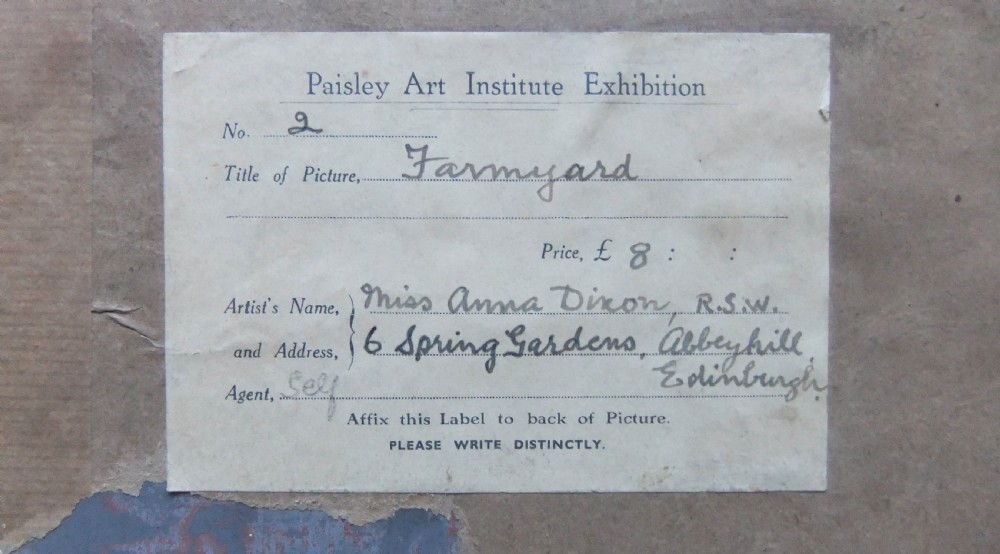 Paisley Art Institute Exhibition
No. 2
Title of Picture, Farmyard
Price, £ 8 : :
Artist's Name, Miss Anna Dixon, R.S.W.
and Address, 6 Spring Gardens, Abbeyhill,
Edinburgh.
Agent, Self
Affix this Label to back of Picture.
PLEASE WRITE DISTINCTLY.